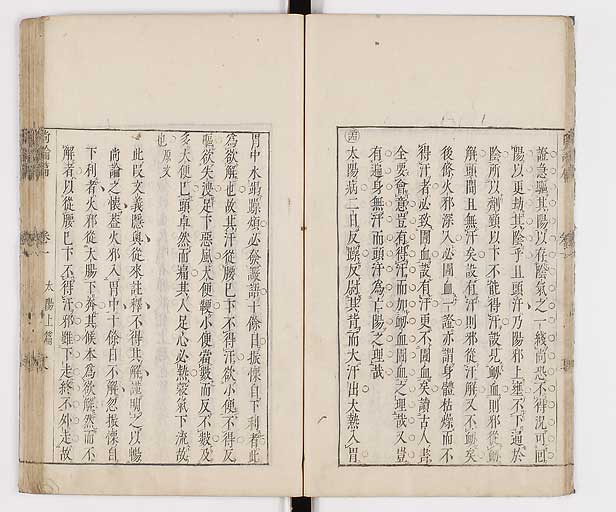 證急驅其陽以存陰氣之一綫尚恐不得況可回
陽以更劫其陰乎且頭汗乃陽邪上壅不下通於
陰所以劑頸以下不能得汗設見衂血則邪從衂
解頭間且無汗矣設有汗則邪從汗解又不衂矣
後條火邪深入必圊血一證亦謂身體枯燥而不
得汗者必致圊血設有汗更不圊血矣讀古人書
全要會意豈有得汗而加衂血圊血之理哉又豈
有遍身無汗而頭汗為亡陽之理哉
太陽病二日反躁反熨其背而大汗出大熱入胃
胃中水竭躁煩必發譫語十餘日振慄自下利者此
為欲解也故其汗從腰已下不得汗欲小便不得反
嘔欲失溲足下惡風大便鞕小便當數而反不數及
多大便已頭卓然而痛其人足心必熱穀氣下流故
也 原文
此段文義隱奧從來註釋不得其解謹明之以暢
尚論之懷蓋火邪入胃中十餘日不解忽振慄自
下利者火邪從大腸下奔其候本為欲解然而不
解者以從腰已下不得汗邪雖下走終不外走故
尚論篇 卷一 太陽上篇